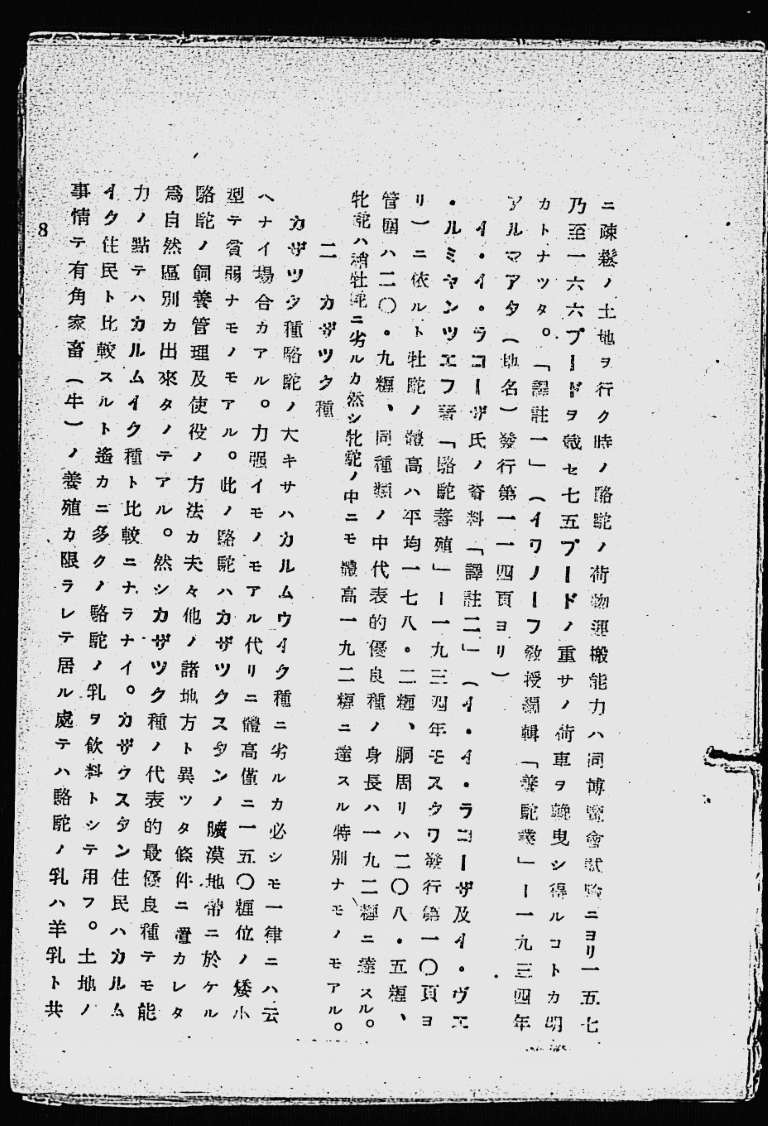 ニ疎鬆ノ土地ヲ行ク時ノ駱駝ノ荷物運搬能力ハ同博覽會試驗ニヨリ一五七
乃至一六六プードヲ載セ七五プードノ重サノ荷車ヲ輓曳シ得ルコトカ明
カトナツタ。「譯註一」(イワノーフ敎授編輯「養駝業」ー一九三四年
アルマアタ(地名)發行第一一四頁ヨリ)
イ・イ・ラコーザ氏ノ資料「譯註二」(イ・イ・ラコーザ及イ・ヴエ
・ルミヤンツエフ著「駱駝蕃殖」ー一九三四年モスクワ發行第一〇頁ヨ
リ)ニ依ルト牡駝ノ體高ハ平均一七八・二糎、胴周リハ二〇八・五糎、
管圍ハ二〇・九糎、同種類ノ中代表的優良種ノ身長ハ一九二糎ニ達スル。
牝駝ハ稍牡駝ニ劣ルカ然シ牝駝ノ中ニモ體高一九二糎ニ達スル特別ナモノモアル。
二 カザツク種
カザツク種駱駝ノ大キサハカルムウイク種ニ劣ルカ必シモ一律ニハ云
ヘナイ場合カアル。力强イモノモアル代リニ體高僅ニ一五〇糎位ノ矮小
型テ貧弱ナモノモアル。此ノ駱駝ハカザツクスタンノ曠漠地帶ニ於ケル
駱駝ノ飼養管理及使役ノ方法カ夫々他ノ諸地方ト異ツタ條件ニ置カレタ
爲自然區別カ出來タノテアル。然シカザツク種ノ代表的最優良種テモ能
力ノ點テハカルムイク種ト比較ニナラナイ。カザクスタン住民ハカルム
イク住民ト比較スルト遙カニ多クノ駱駝ノ乳ヲ飮料トシテ用フ。土地ノ
事情テ有角家畜(牛)ノ養殖カ限ラレテ居ル處テハ駱駝ノ乳ハ羊乳ト共
8